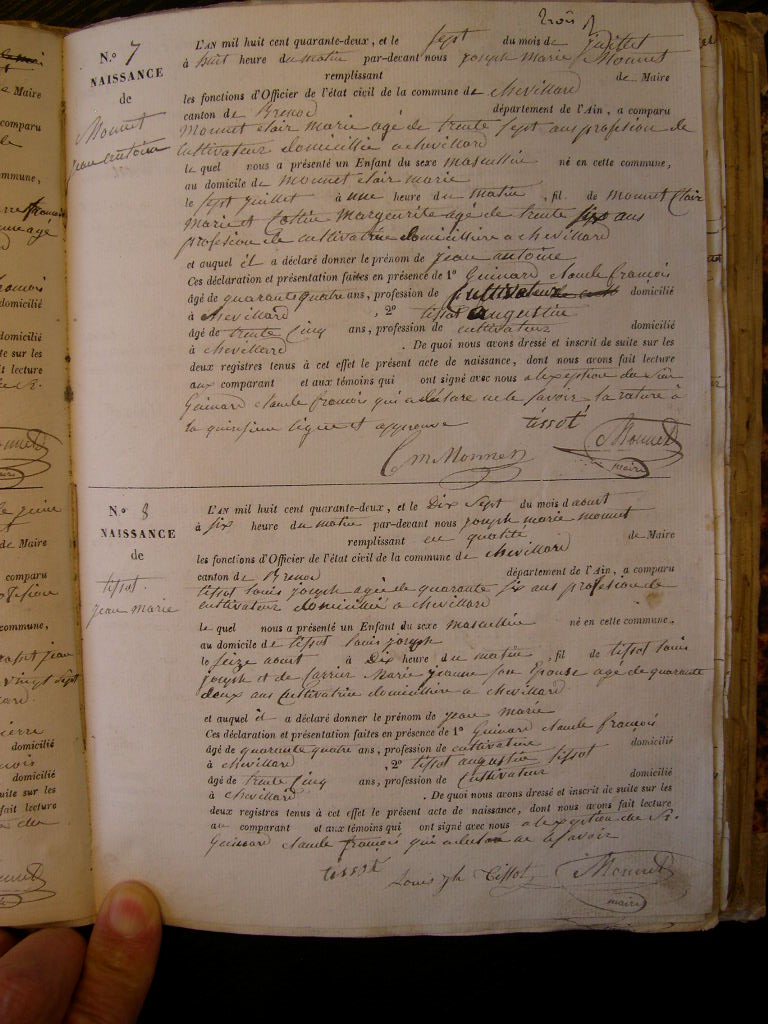 trois
N.º 7
NAISSANCE
de
Monnet
jean antoine
L'AN mil huit cent quarante-deux, et le sept du mois de juillet
à huit heure du matin par-devant nous joseph marie Monnet
remplissant de Maire
les fonctions d'Officier de l'état civil de la commune de chevillard
canton de Brenod département de l'Ain, a comparu
Monnet clair marie agé de trente sept ans profession de
cultivateur domicillié a chevillard
le quel nous a présenté un Enfant du sexe masculin né en cette commune,
au domicile de Monnet clair marie
le sept juillet à une heure du matin, fil de monnet clair
marie et Cottin Marguerite agé de trente six ans
profesion de cultivatrice domicilliere a chevillard
et auquel il a déclaré donner le prénom de jean antoine
Ces déclaration et présentation faites en présence de 1º Guinard claude françois
âgé de quarante quatre ans, profession de Cultivateur domicilié
à chevillard, 2º tissot augustin
âgé de trente cinq ans, profession de cultivateur domicilié
à chevillard. De quoi nous avons dressé et inscrit de suite sur les
deux registres tenus à cet effet le présent acte de naissance, dont nous avons fait lecture
aux comparant et aux témoins qui ont signé avec nous a lexeption du sieur
Guinard claude francois qui a déclare ne le savoir la rature à
la quinzieme ligne et approuve tissot
Cm Monnet Monnet
maire
N.º 8
NAISSANCE
de
tissot
jean marie
L'AN mil huit cent quarante-deux, et le Dix Sept du mois d aout
à six heure du matin par-devant nous joseph marie monnet
remplissant en qualité de Maire
les fonctions d'Officier de l'état civil de la commune de chevillard
canton de Brenod département de l'Ain, a comparu
tissot louis joseph agé de quarante six ans profesion de
cultivateur domicillié a chevillard
le quel nous a présenté un Enfant du sexe masculin né en cette commune,
au domicile de tissot louis joseph
le seize aout, à Dix heure du matin, fil de tissot louis
joseph et de Carrier Marie jeanne son Epouse agé de quarante
deux ans Cultivatrice domicilliere a chevillard
et auquel il a déclaré donner le prénom de jean marie
Ces déclaration et présentation faites en présence de 1º Guinard claude françois
âgé de quarante quatre ans, profession de cultivateur domicilié
à chevillard, 2º tissot augustin tissot
âgé de trente cinq ans, profession de Cultivateur domicilié
à chevillard. De quoi nous avons dressé et inscrit de suite sur les
deux registres tenus à cet effet le présent acte de naissance, dont nous avons fait lecture
au comparant et aux témoins qui ont signé avec nous a lexeption du Sr.
Guinard claude françois qui a declare ne le savoir
tissot Louis jh Tissot Monnet
maire